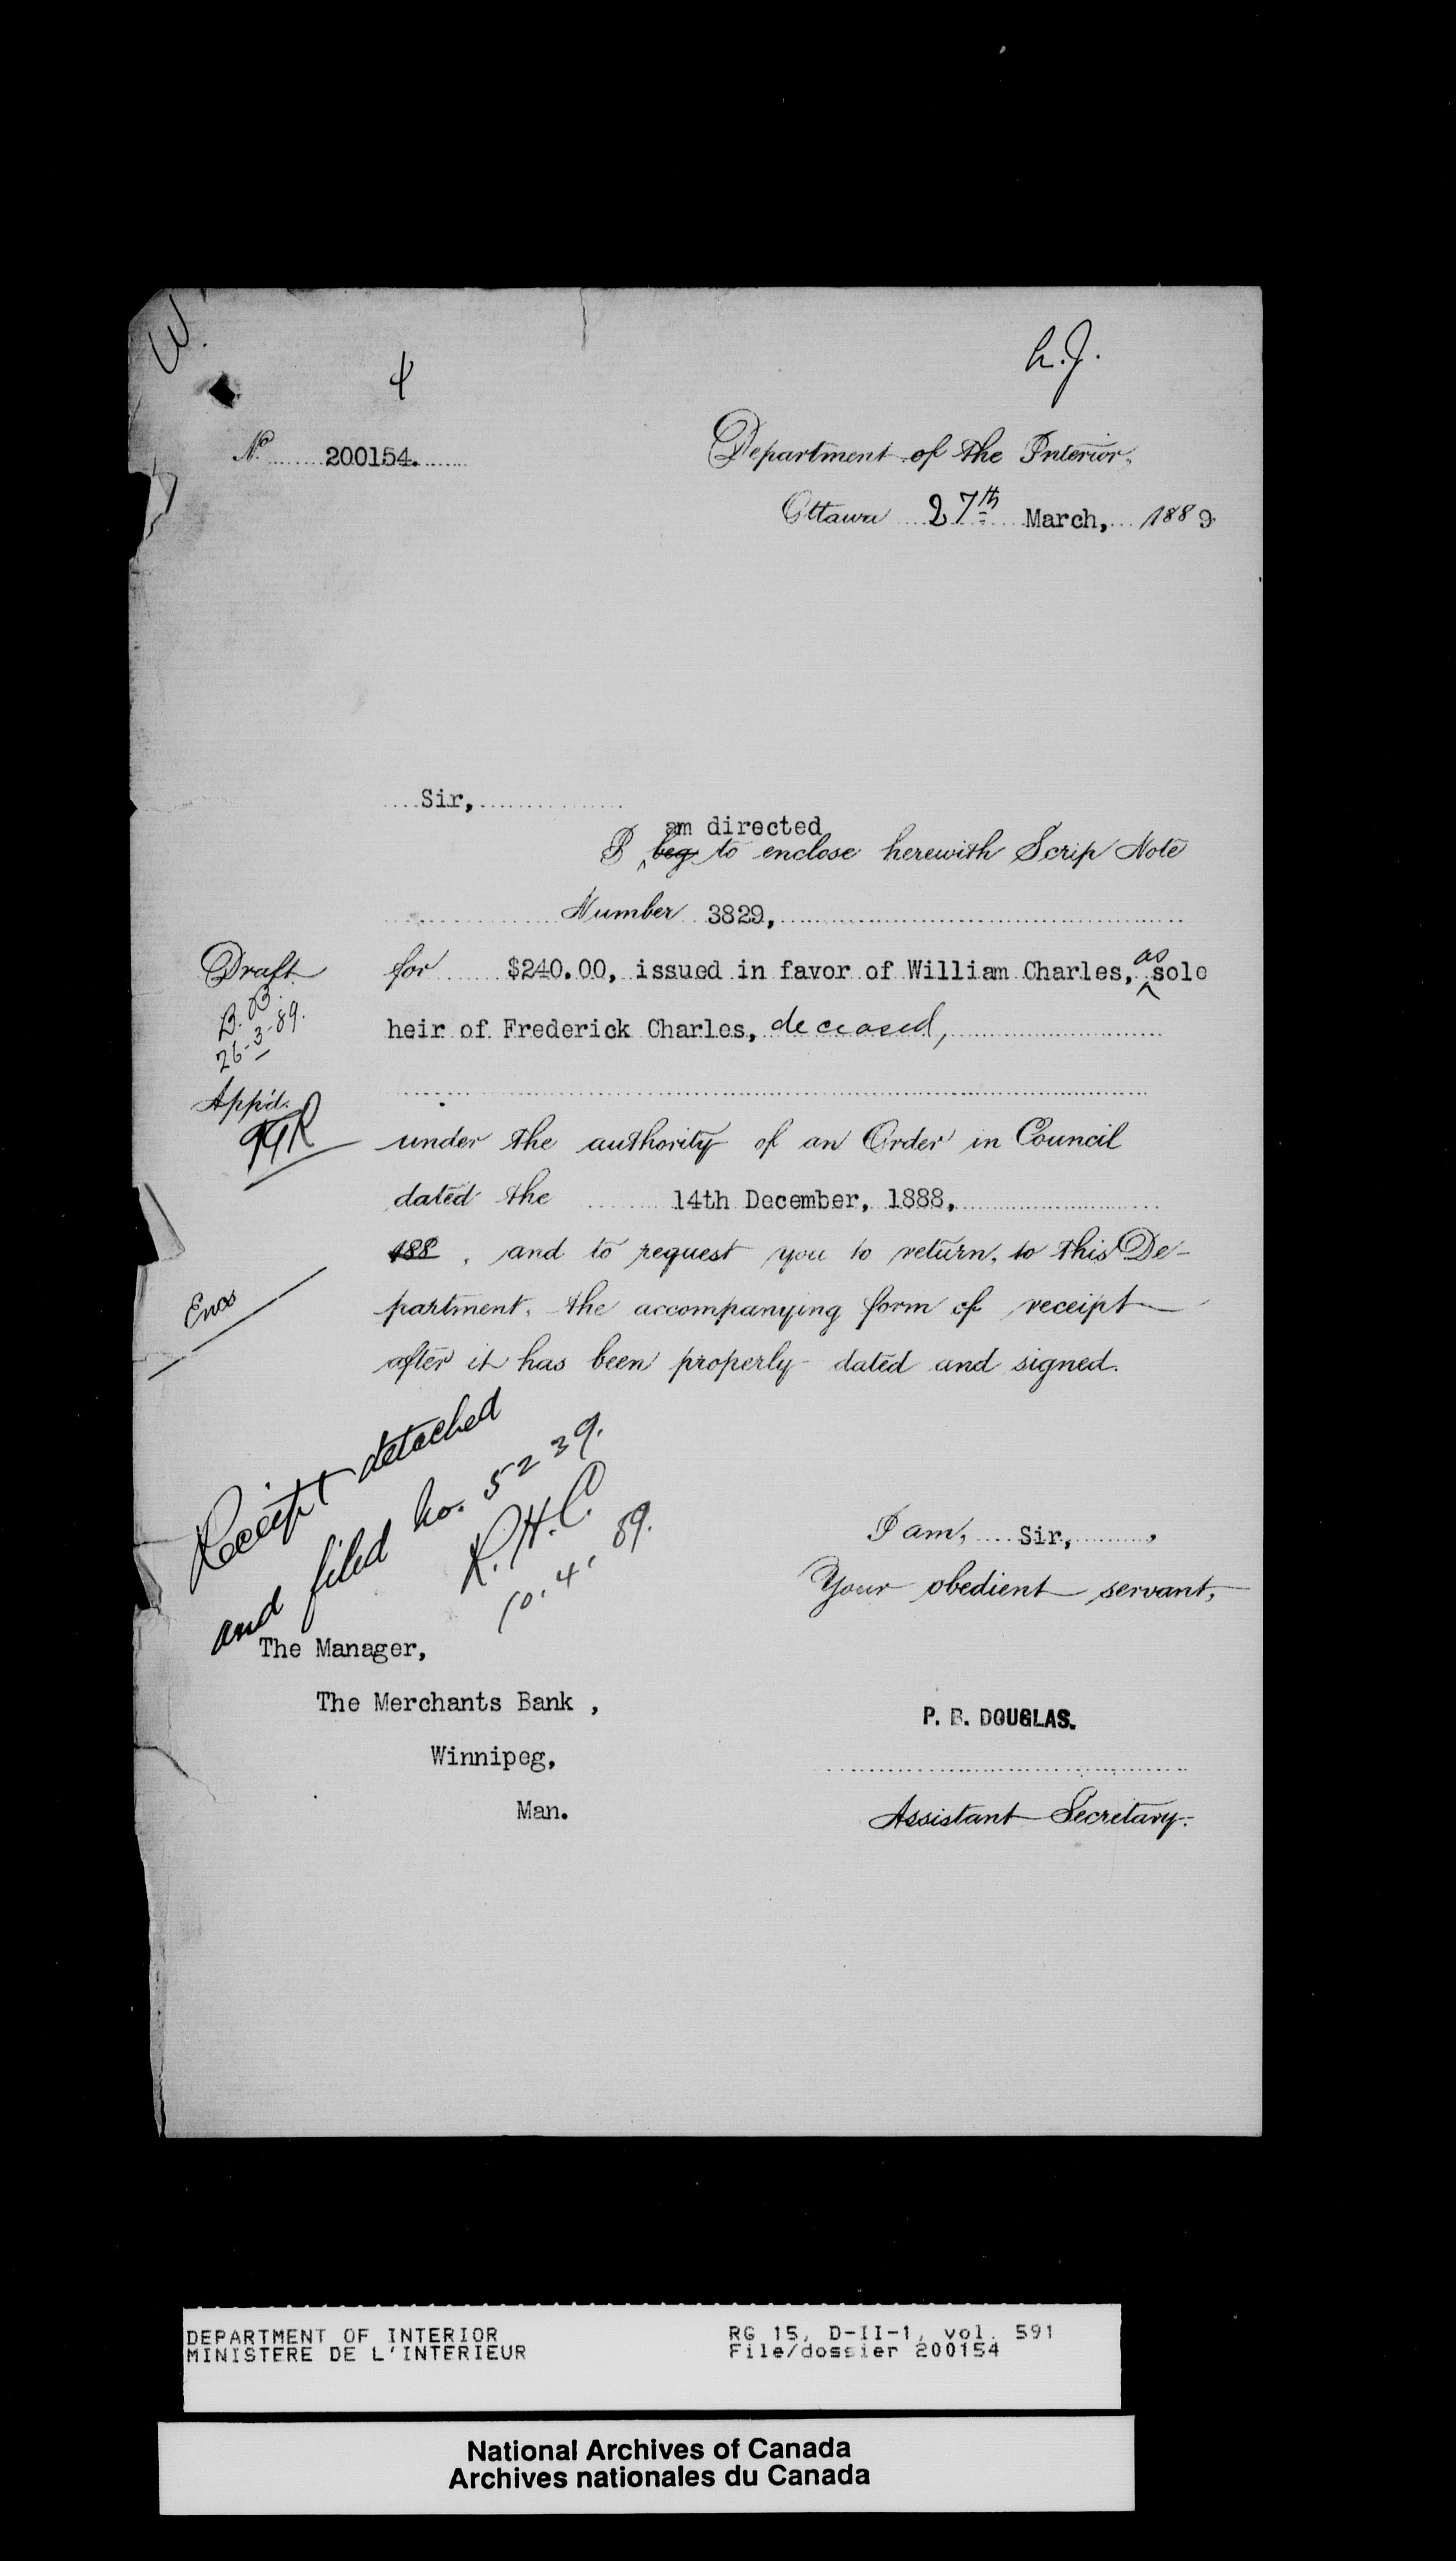 W.
4
h.J.
No 200154.
Department of the Interior,
Ottawa 27th March, 1889
Sir,
am directed
I beg to enclose herewith Scrip Note
Number 3829,
Draft
for $240.00, issued in favor of William Charles, as sole
B.B.
26-3-89.
heir of Frederick Charles, deceased,
App'd.
under the authority of an Order in Council
dated the 14th December, 1888,
188 , and to request you to return, to this De-
partment, the accompanying form of receipt
after it has been properly dated and signed.
Receipt detached
and filed No. 5239.
R.H.C.
10.4.89.
I am, Sir,
Your obedient servant,
The Manager,
The Merchants Bank ,
Winnipeg,
Man.
P. B. DOUGLAS.
Assistant Secretary.
DEPARTMENT OF INTERIOR
MINISTERE DE L'INTERIEUR
RG 15, D-II-1, vol. 591
File/dossier 200154
National Archives of Canada
Archives nationales du Canada